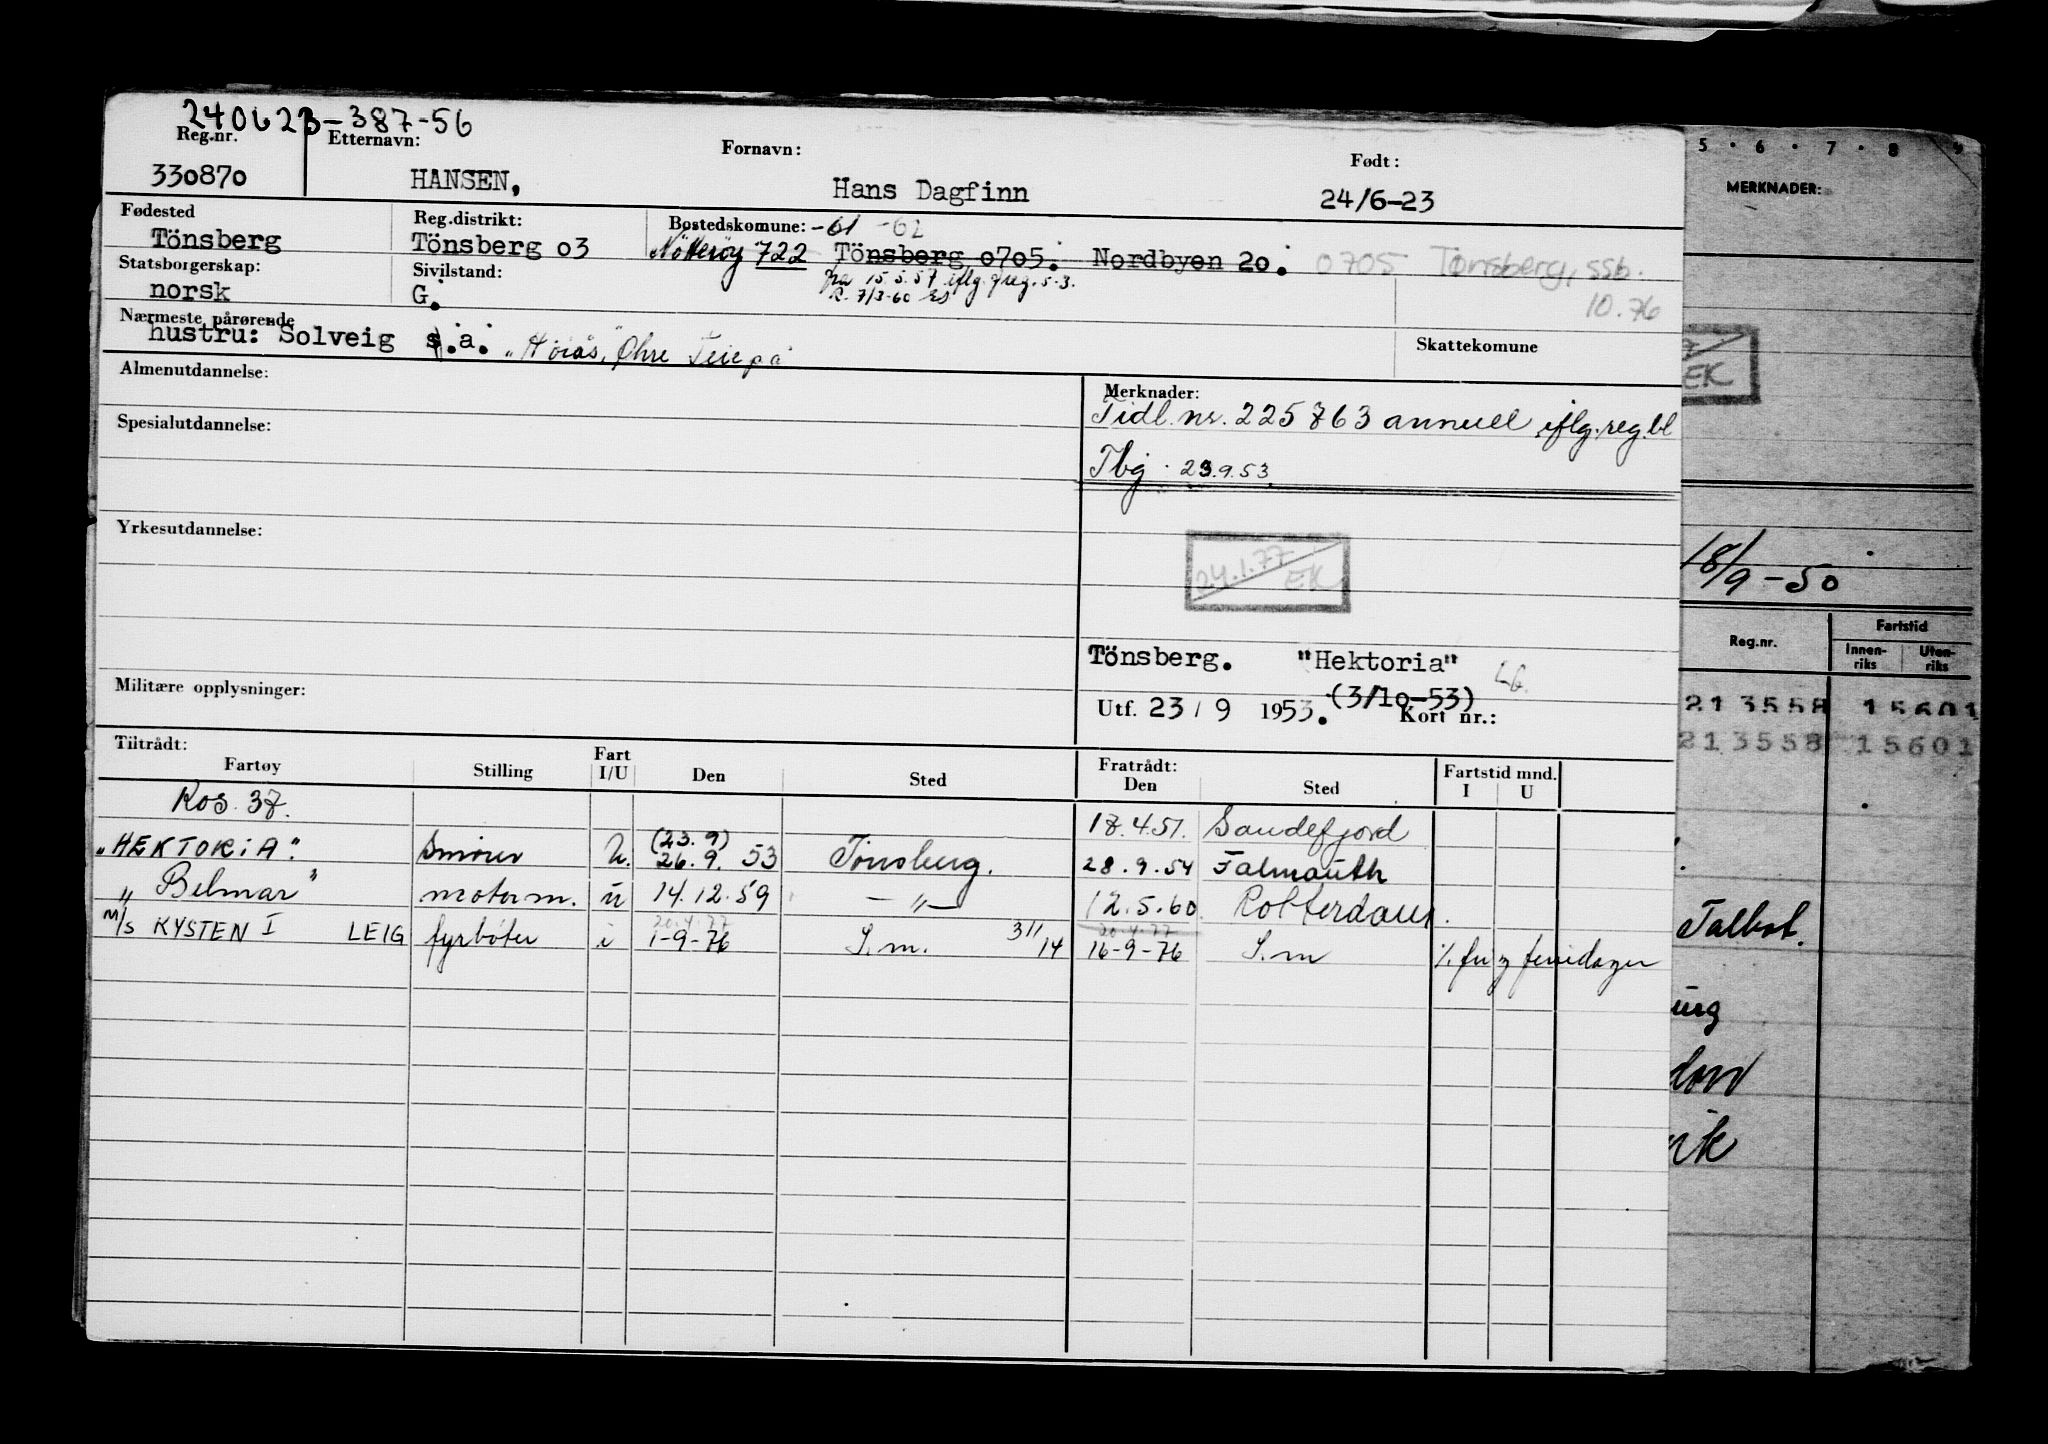 240623-387-56
Reg.nr. Etternavn: Fornavn: Født:
330870 HANSEN, Hans Dagfinn 24/6-23
Fødested Reg.distrikt: Bostedskomune: -61 -62
Tönsberg Tönsberg 03 Nötterøy 722 Tönsberg 0705. Nordbyen 20. 0705 Tønsberg, ssb.
10.76
fra 15.5.57 iflg. freg. s-3.
R. 7/3-60 ES
Statsborgerskap: Sivilstand:
norsk G.
Nærmeste pårørende Skattekomune
hustru: Solveig s.a. "Höiås," Øhre Teie på
Almenutdannelse: Merknader:
Tidl. nr. 225763 annull iflg. reg.bl
Spesialutdannelse:
Tbg. 23.9.53
Yrkesutdannelse:
24.1.77
EK
Tönsberg. "Hektoria"
(3/10-53)
Militære opplysninger: Utf. 23/9 1953. Kort nr.:
Tiltrådt: Fratrådt: Fartstid mnd.
Fartøy Stilling Fart I/U Den Sted Den Sted I U
Kos. 37. 18.4.51. Sandefjord
"HEKTORIA" Smörer U. (23.9) 26.9. 53 Tönsberg. 28.9.54 Falmouth
"Belmar" motorm. u 14.12.59 — " — 12.5.60 Rotterdam.
20.4.77 20.4.77
M/S KYSTEN I LEIG fyrböter i 1-9-76 S.m. 311/14 16-9-76 S.m ./. fri og feriedager
5 · 6 · 7 · 8 9
MERKNADER:
EK
18/9-50
Reg.nr. Fartstid
Innen-riks Uten-riks
213558 15601
213558 15601
Talbot.
urg
don
vik